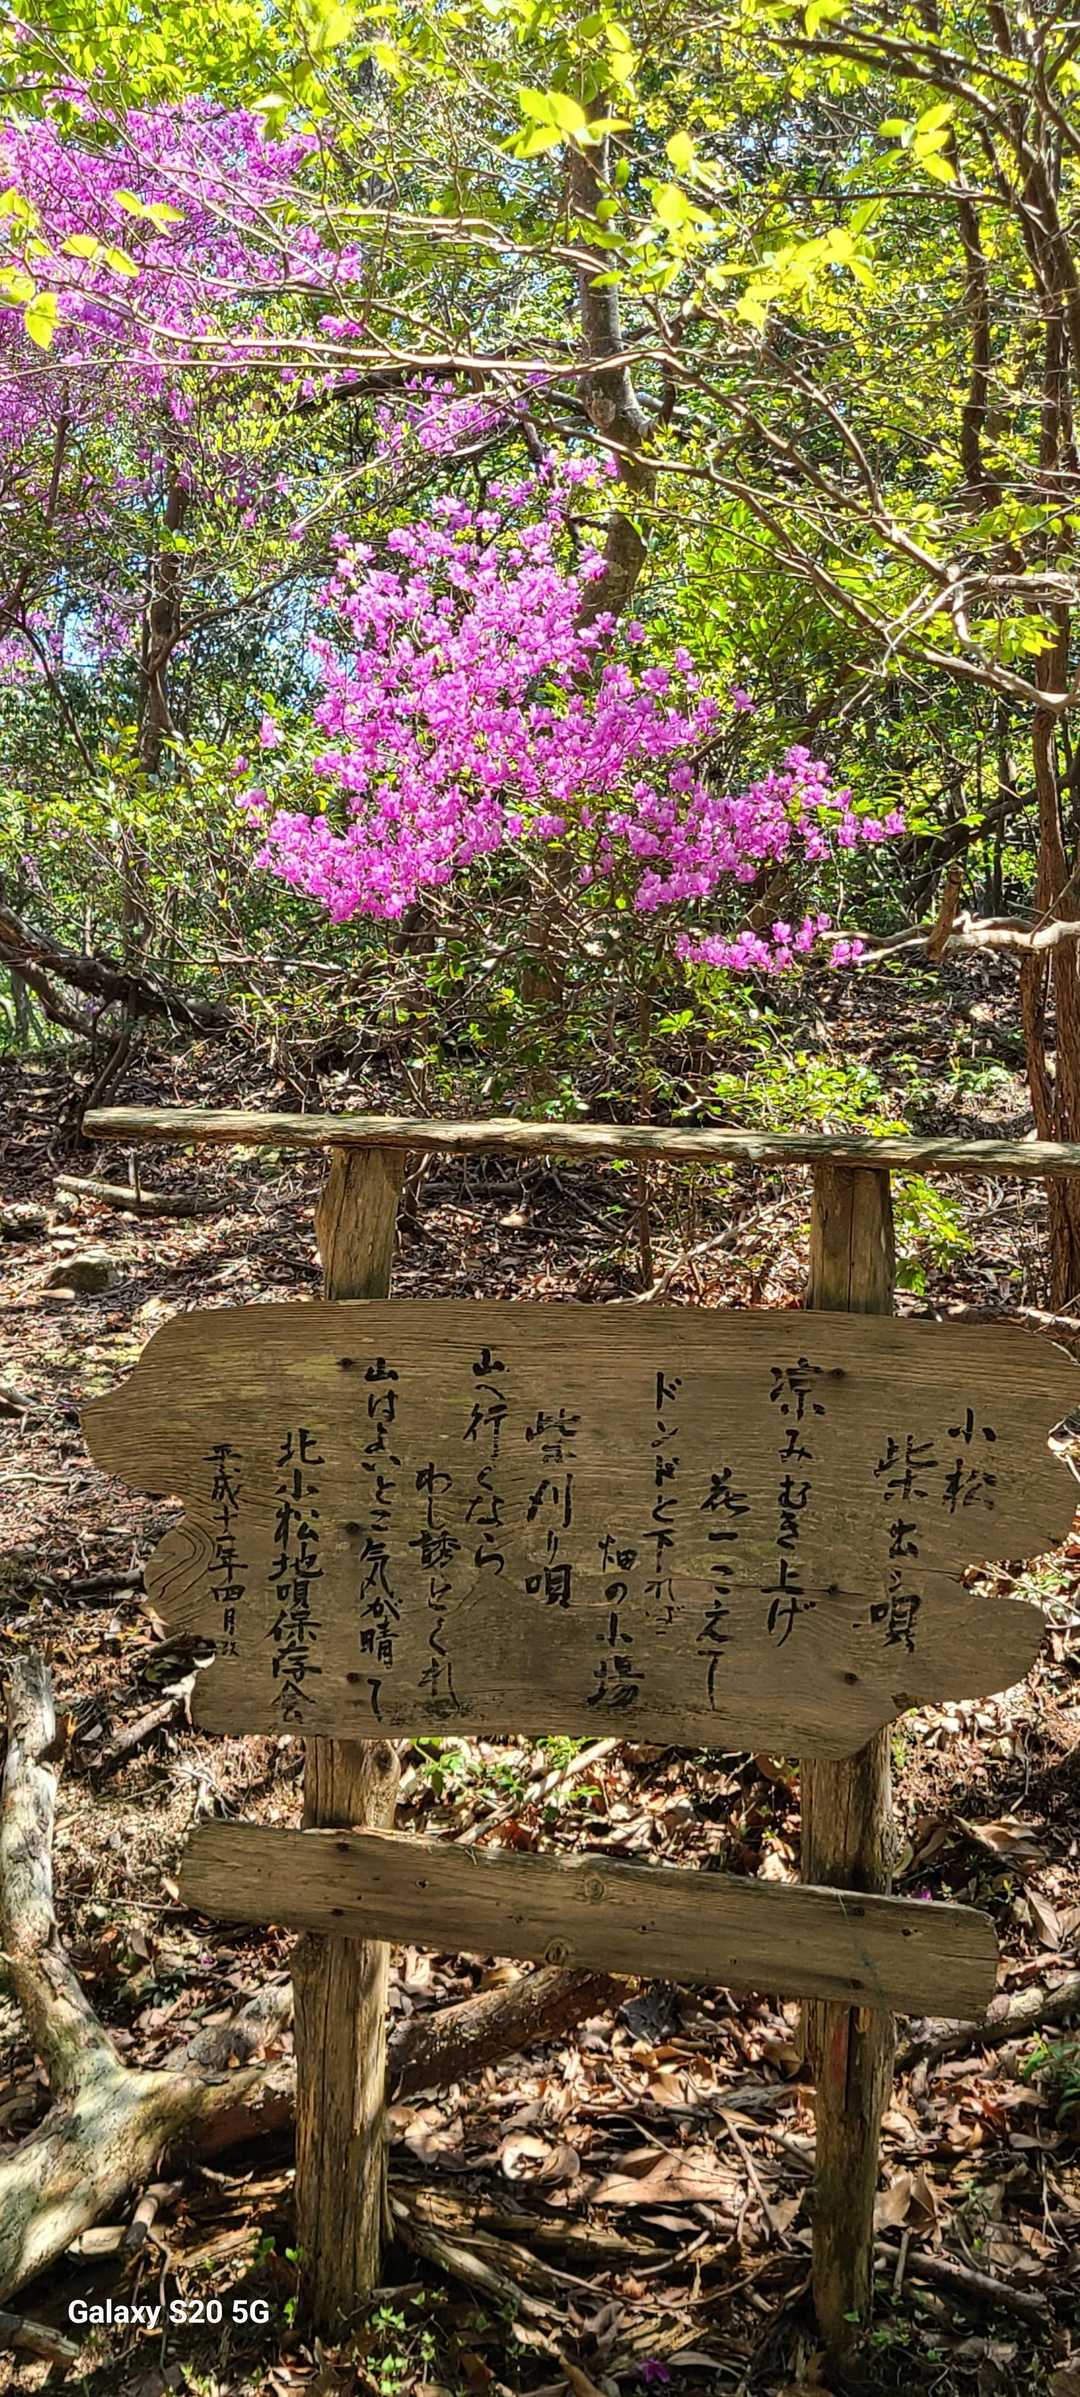 小松
柴出し唄
凉みむき上げ
花一つこえて
ドンドと下れば
畑の小場
柴刈り唄
山へ行くなら
わし誘とくれ
山はよいとこ気が晴て
北小松地唄保存会
平成十二年四月
Galaxy S20 5G